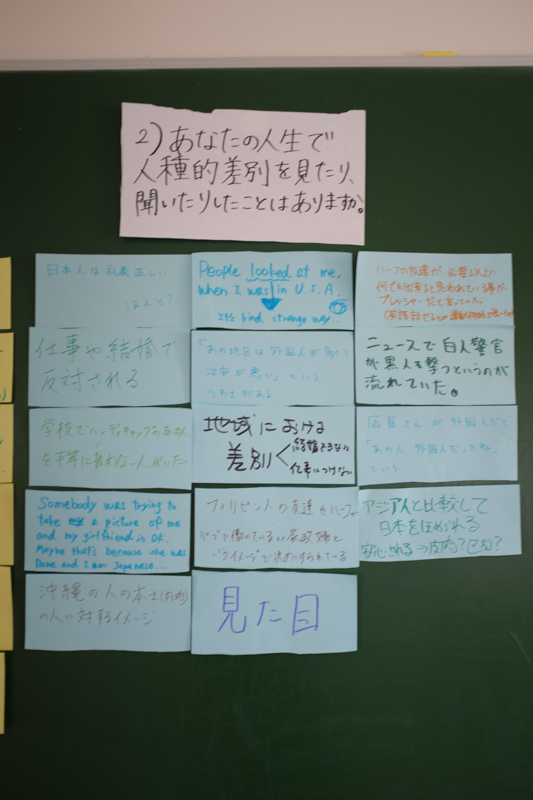 2) あなたの人生で
人種的差別を見たり、
聞いたりしたことはありますか。
日本人は礼義正しい
People looked at me.
when I was in U.S.A.
It's kind strange way...
ハーフの友達が、必要以上に
何でも出来ると思われている事が
プレッシャーだと言っていた。
仕事や結婚で
反対される
「あの地区は外国人が多くて
治安が悪い」という
うわさがある
ニュースで白人警官
が黒人を撃つというのが
流れていた。
学校でハンディキャップのある人
を平等に扱わない人がいた
地域における
差別
結婚できない
仕事につけない
店員さんが外国人だと
「あの人外国人だったね」
という
Somebody was trying to
take a picture of me
and my girlfriend in DK.
Maybe that's because she was
Dane and I am Japanese...
フィリピン人の友達やハーフが
イメージで決めつけられている
アジア人と比較して
日本をほめられる
安心される→区別?
沖縄の人の本土(内地)
の人に対するイメージ
見た目